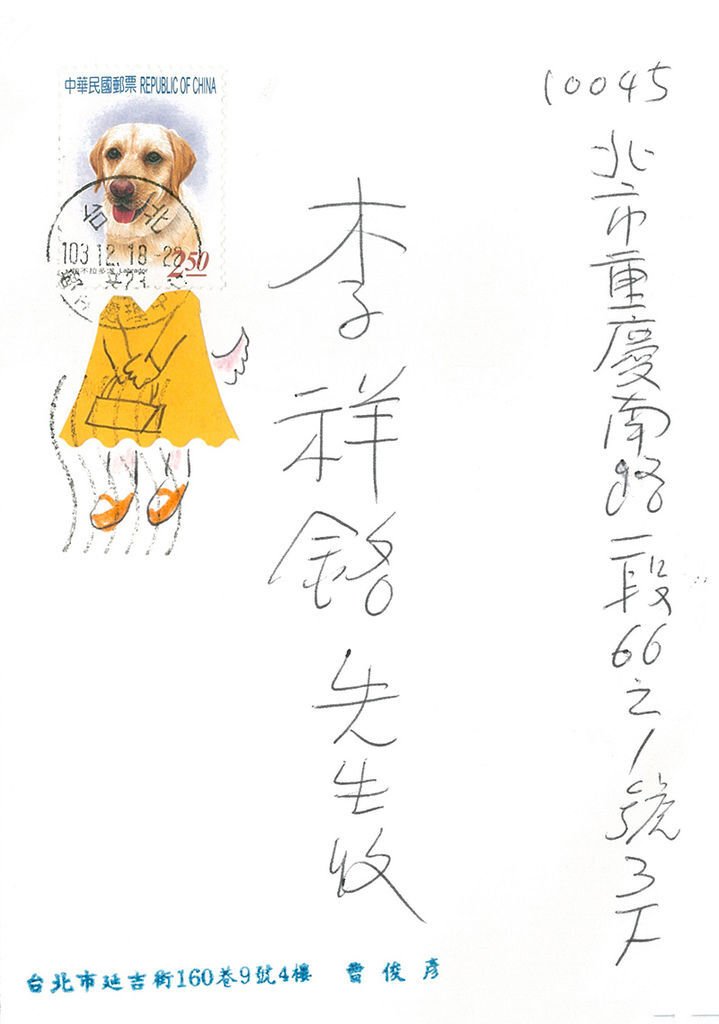 中華民國郵票 REPUBLIC OF CHINA
台北
103.12.18.-2
250
Labrador
10045
北市重慶南路一段66之1號3F
李祥銘先生收
台北市延吉街160巷9號4樓 曹俊彥